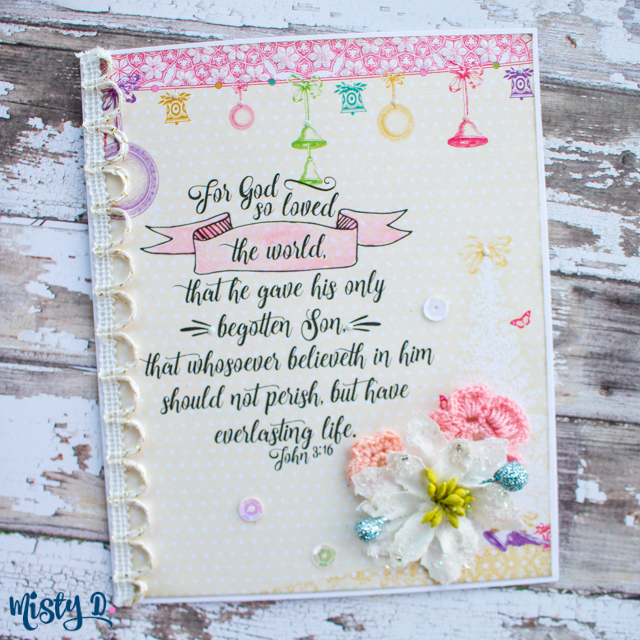 For God
so loved
the world,
that he gave his only
begotten Son,
that whosoever believeth in him
should not perish, but have
everlasting life.
John 3:16
Misty D.